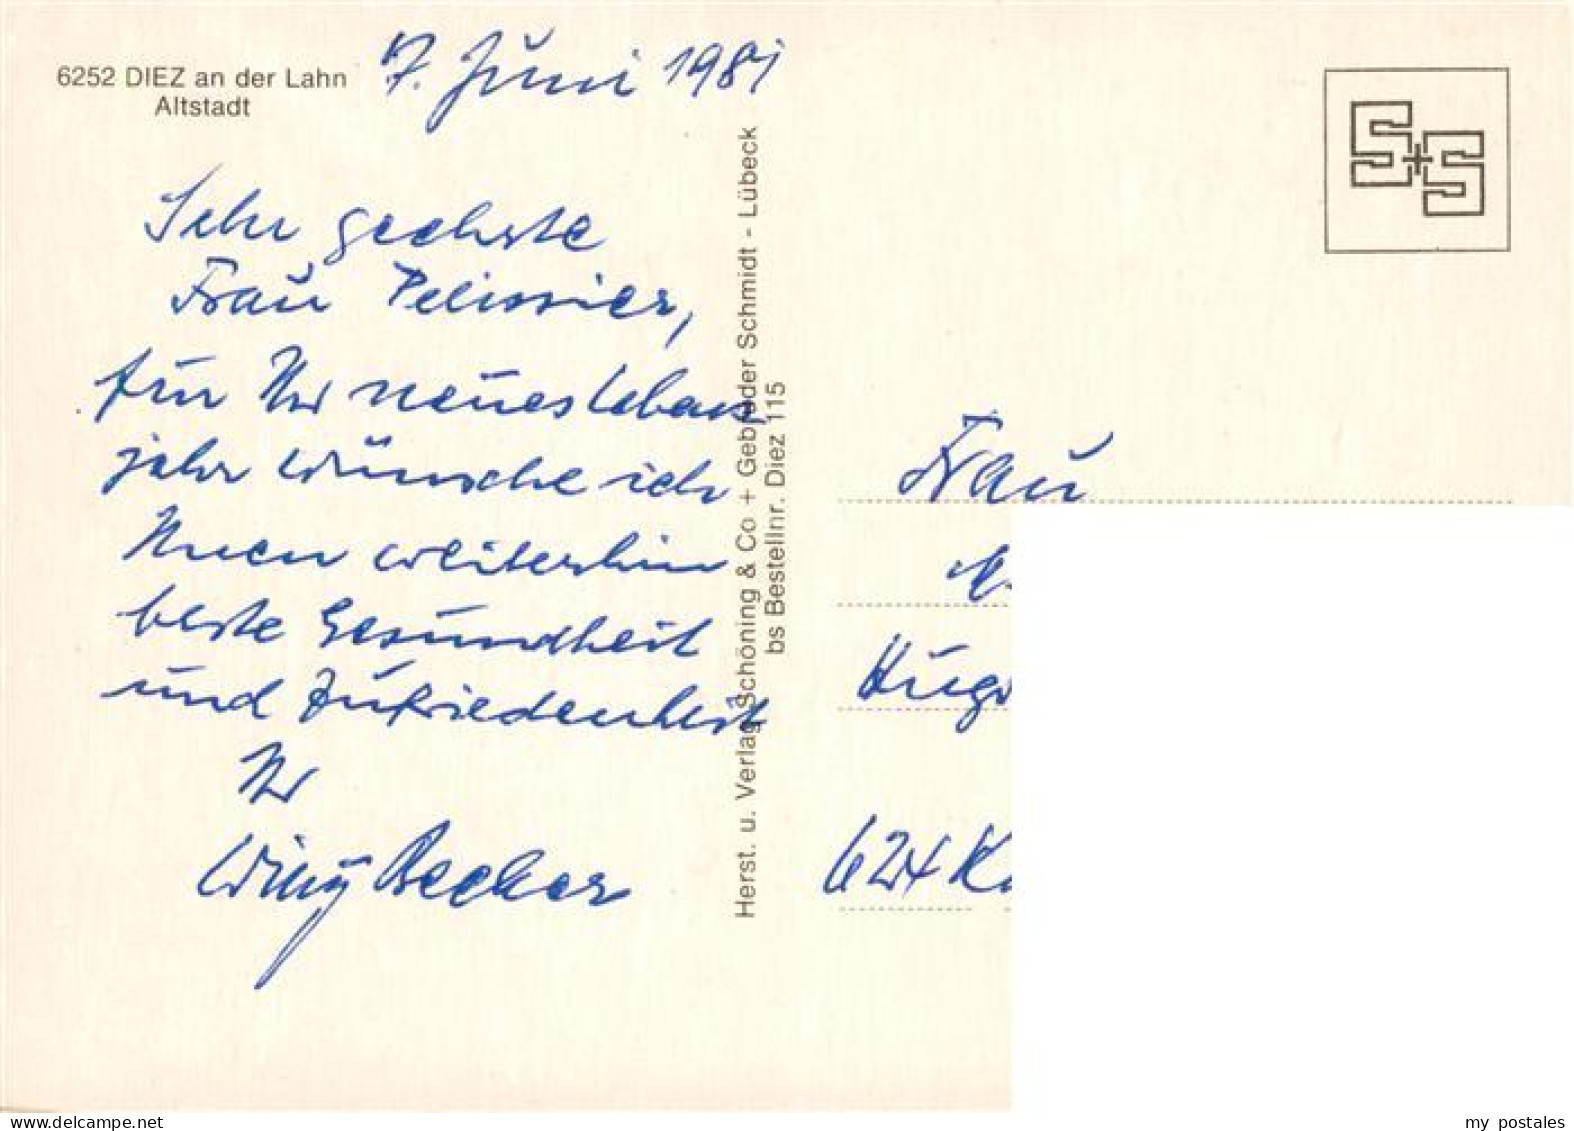 6252 DIEZ an der Lahn
Altstadt
7. Juni 1981
Sehr geehrte
Frau Pelissier,
für Ihr neues Lebens
jahr wünsche ich
Ihnen weiterhin
beste Gesundheit
und Zufriedenheit
Ihr
Willy Becker
Herst. u. Verlag Schöning & Co + Gebrüder Schmidt - Lübeck
bs Bestellnr. Diez 115
S+S
Frau
Hugo
624 K
my postales
www.delcampe.net